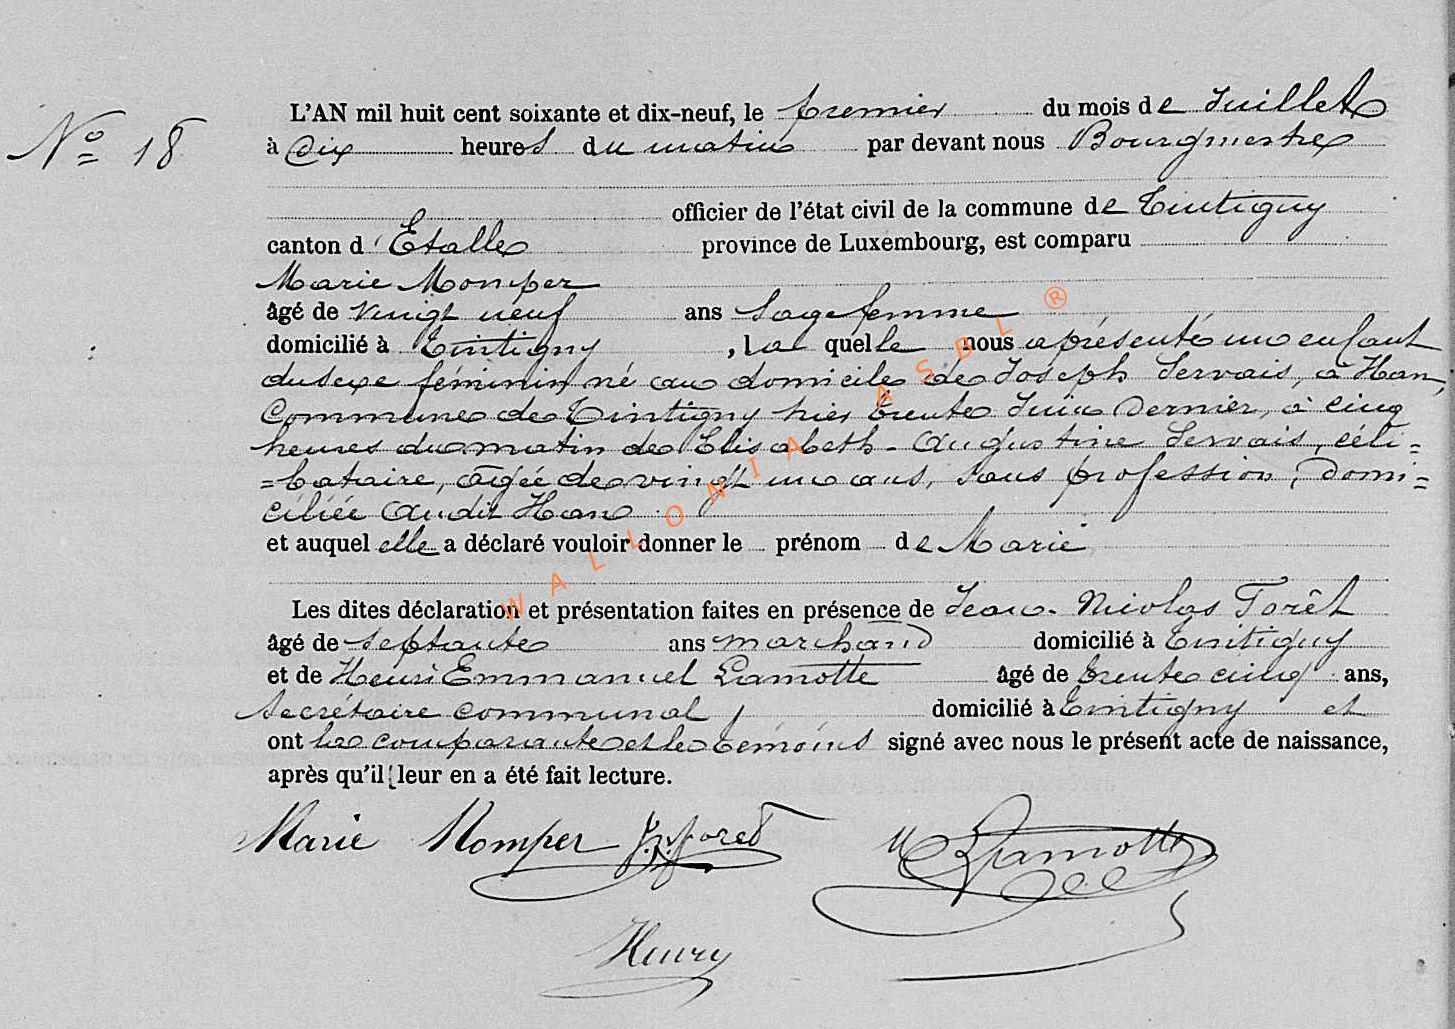 Nº 18
L'AN mil huit cent soixante et dix-neuf, le premier du mois de Juillet
à dix heures du matin par devant nous Bourgmestre
officier de l'état civil de la commune de Tintigny
canton d'Etalle province de Luxembourg, est comparu
Marie Momper
âgé de vingt neuf ans Sage femme
domicilié à Tintigny, la quelle nous a présenté un enfant
du sexe féminin, né au domicile de Joseph Servais, à Han,
Commune de Tintigny hier trente Juin dernier, à cinq
heures du matin de Elisabeth-Augustine Servais, céli=
=bataire, âgée de vingt un ans, sans profession, domi=
ciliée audit Han
et auquel elle a déclaré vouloir donner le prénom de Marie
Les dites déclaration et présentation faites en présence de Jean-Nicolas Forêt
âgé de septante ans marchand domicilié à Tintigny
et de Henri Emmanuel Lamotte âgé de trente cinq ans,
Secrétaire communal, domicilié à Tintigny et
ont la comparante et les témoins signé avec nous le présent acte de naissance,
après qu'il leur en a été fait lecture.
Marie Momper J.N. foret Lamotte
Henry
WALLONIA ASBL ®